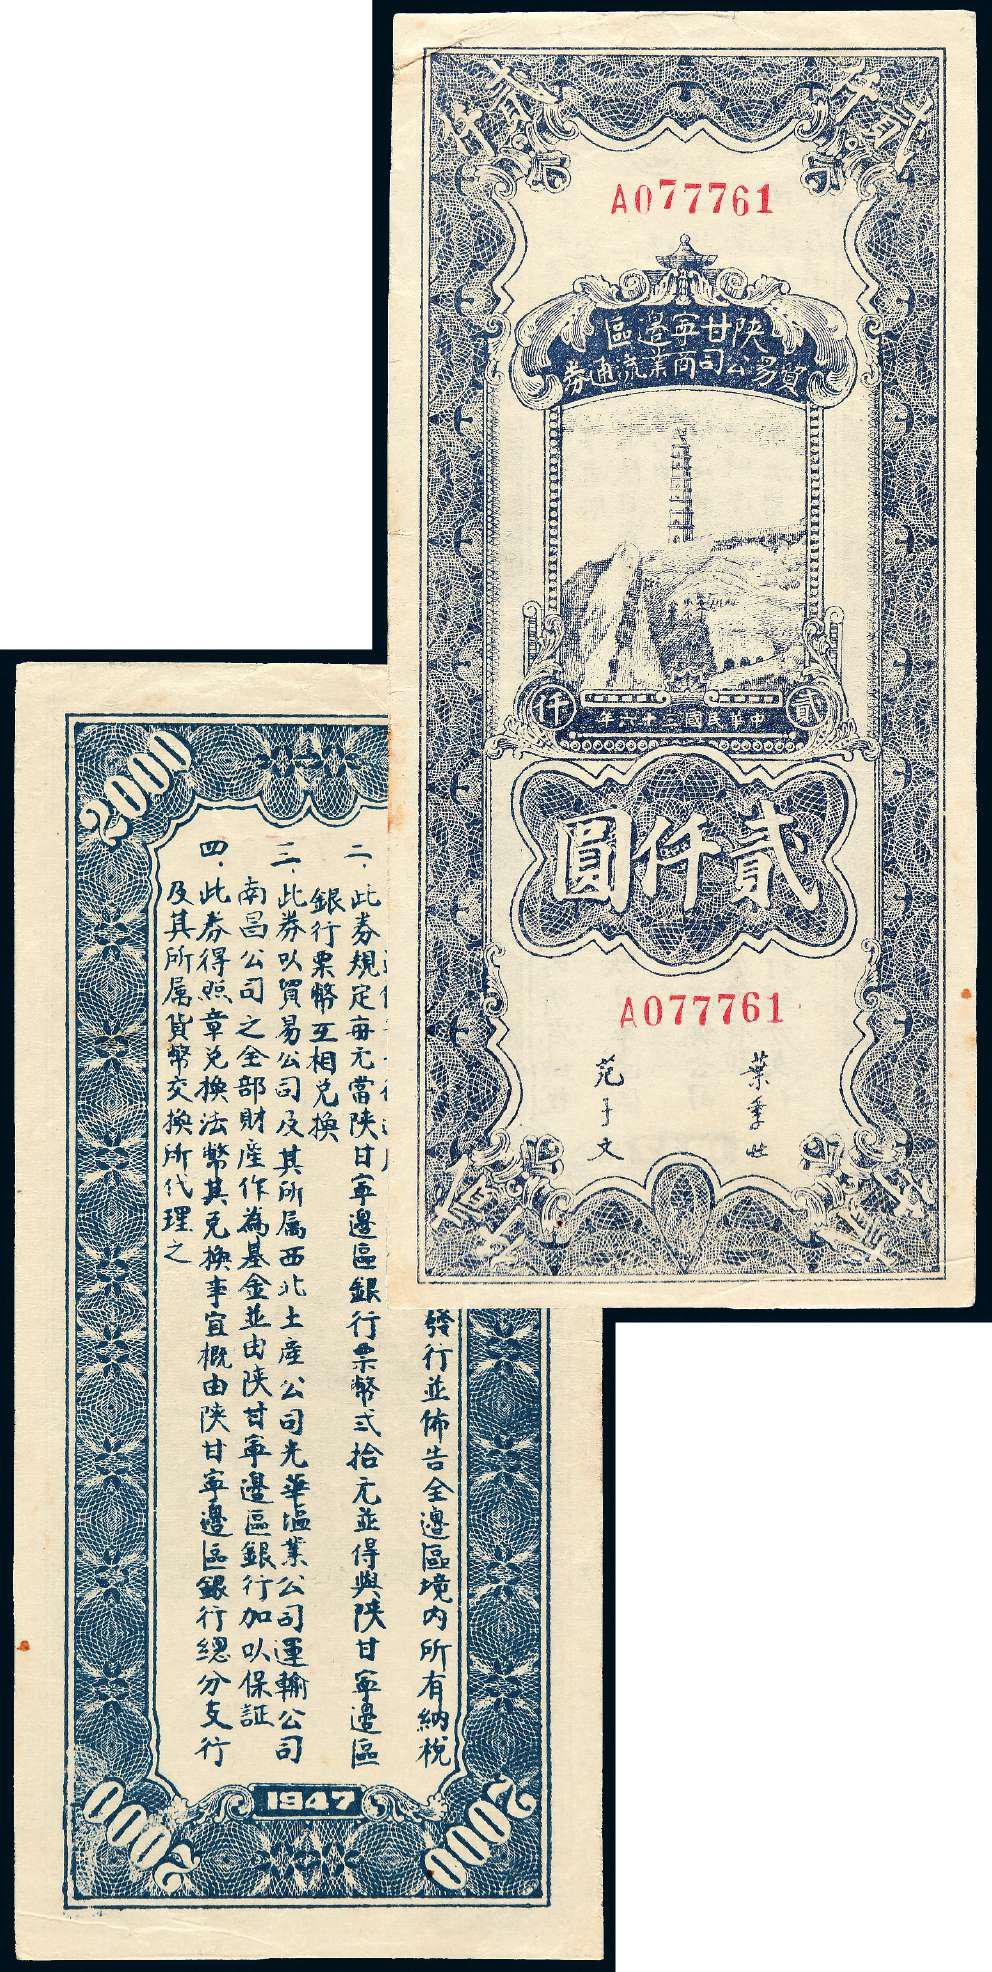 貳仟
貳仟
A077761
陝甘寧邊區
貿易公司商業流通券
貳
仟
中華民國三十六年
貳仟圓
A077761
葉季壯
范子文
2000
發行並佈告全邊區境內所有納稅
二、此券規定每元當陝甘寧邊區銀行票幣弍拾元並得與陝甘寧邊區
銀行票幣互相兑換
三、此券以貿易公司及其所属西北土產公司光華塩業公司運輸公司
南昌公司之全部財產作為基金並由陝甘寧邊區銀行加以保証
四、此券得照章兑換法幣其兑換事宜概由陝甘寧邊區銀行總分支行
及其所属貨幣交換所代理之
1947
2000
2000